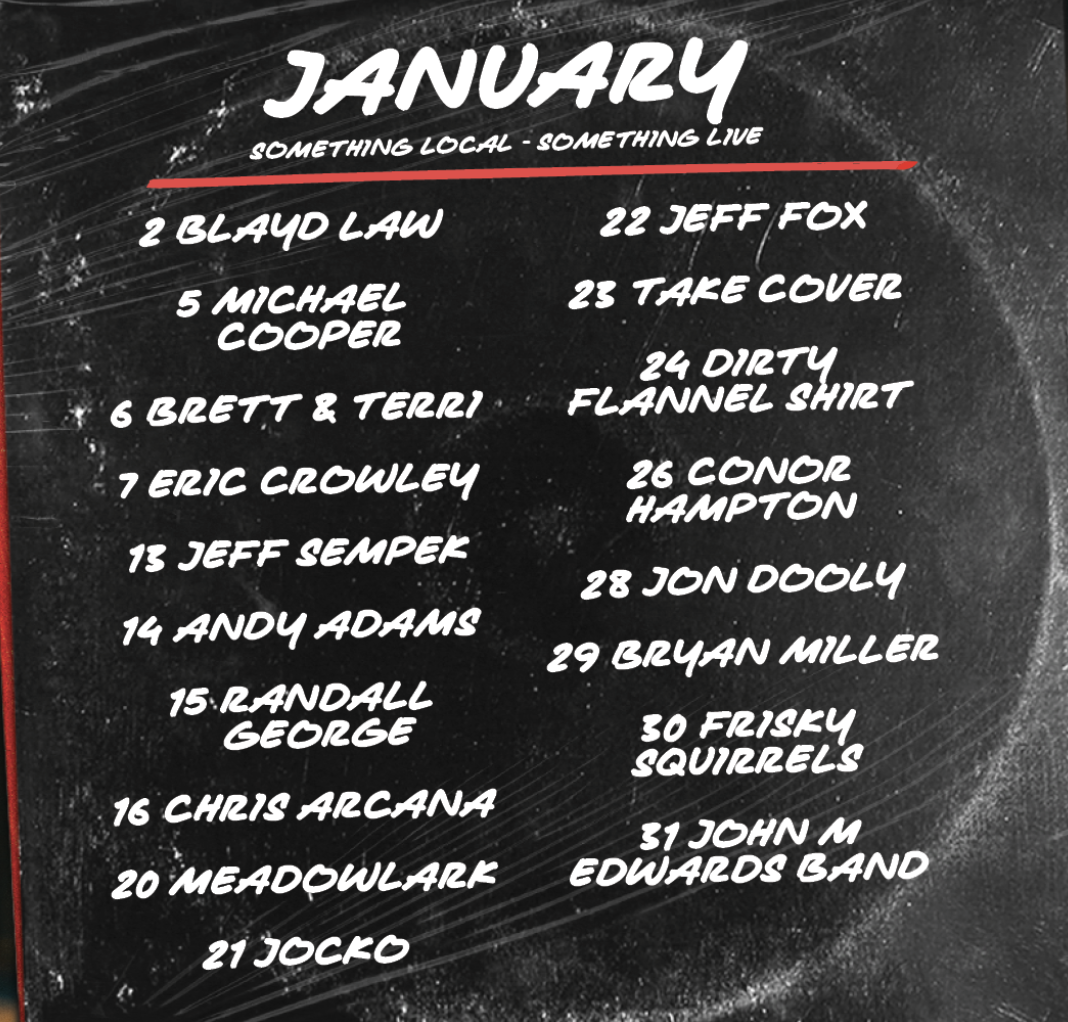 JANUARY
SOMETHING LOCAL - SOMETHING LIVE
2 BLAYD LAW
5 MICHAEL
COOPER
6 BRETT & TERRI
7 ERIC CROWLEY
13 JEFF SEMPEK
14 ANDY ADAMS
15 RANDALL
GEORGE
16 CHRIS ARCANA
20 MEADOWLARK
21 JOCKO
22 JEFF FOX
23 TAKE COVER
24 DIRTY
FLANNEL SHIRT
26 CONOR
HAMPTON
28 JON DOOLY
29 BRYAN MILLER
30 FRISKY
SQUIRRELS
31 JOHN M
EDWARDS BAND